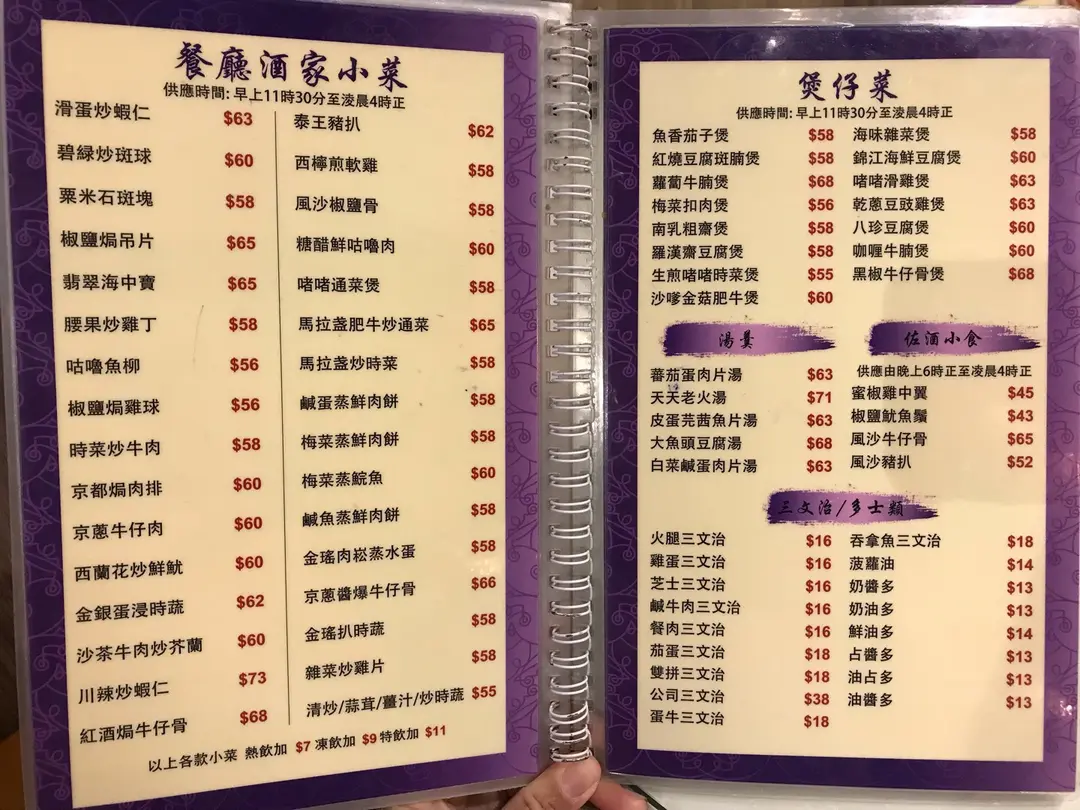 餐廳酒家小菜
供應時間: 早上11時30分至淩晨4時正
滑蛋炒蝦仁 $63
碧綠炒斑球 $60
粟米石斑塊 $58
椒鹽焗吊片 $65
翡翠海中寶 $65
腰果炒雞丁 $58
咕嚕魚柳 $56
椒鹽焗雞球 $56
時菜炒牛肉 $58
京都焗肉排 $60
京蔥牛仔肉 $60
西蘭花炒鮮魷 $60
金銀蛋浸時蔬 $62
沙茶牛肉炒芥蘭 $60
川辣炒蝦仁 $73
紅酒焗牛仔骨 $68
泰王豬扒 $62
西檸煎軟雞 $58
風沙椒鹽骨 $58
糖醋鮮咕嚕肉 $60
啫啫通菜煲 $58
馬拉盞肥牛炒通菜 $65
馬拉盞炒時菜 $58
鹹蛋蒸鮮肉餅 $58
梅菜蒸鮮肉餅 $58
梅菜蒸鯇魚 $60
鹹魚蒸鮮肉餅 $58
金瑤肉崧蒸水蛋 $58
京蔥醬爆牛仔骨 $66
金瑤扒時蔬 $58
雜菜炒雞片 $58
清炒/蒜茸/薑汁/炒時蔬 $55
以上各款小菜 熱飲加 $7 凍飲加 $9 特飲加 $11
煲仔菜
供應時間: 早上11時30分至淩晨4時正
魚香茄子煲 $58
紅燒豆腐斑腩煲 $58
蘿蔔牛腩煲 $68
梅菜扣肉煲 $56
南乳粗齋煲 $58
羅漢齋豆腐煲 $58
生煎啫啫時菜煲 $55
沙嗲金菇肥牛煲 $60
海味雜菜煲 $58
錦江海鮮豆腐煲 $60
啫啫滑雞煲 $63
乾蔥豆豉雞煲 $63
八珍豆腐煲 $60
咖喱牛腩煲 $60
黑椒牛仔骨煲 $68
湯羹
蕃茄蛋肉片湯 $63
天天老火湯 $71
皮蛋芫茜魚片湯 $63
大魚頭豆腐湯 $68
白菜鹹蛋肉片湯 $63
佐酒小食
供應由晚上6時正至凌晨4時正
蜜椒雞中翼 $45
椒鹽魷魚鬚 $43
風沙牛仔骨 $65
風沙豬扒 $52
三文治/多士類
火腿三文治 $16
雞蛋三文治 $16
芝士三文治 $16
鹹牛肉三文治 $16
餐肉三文治 $16
茄蛋三文治 $18
雙拼三文治 $18
公司三文治 $38
蛋牛三文治 $18
吞拿魚三文治 $18
菠蘿油 $14
奶醬多 $13
奶油多 $13
鮮油多 $14
占醬多 $13
油占多 $13
油醬多 $13